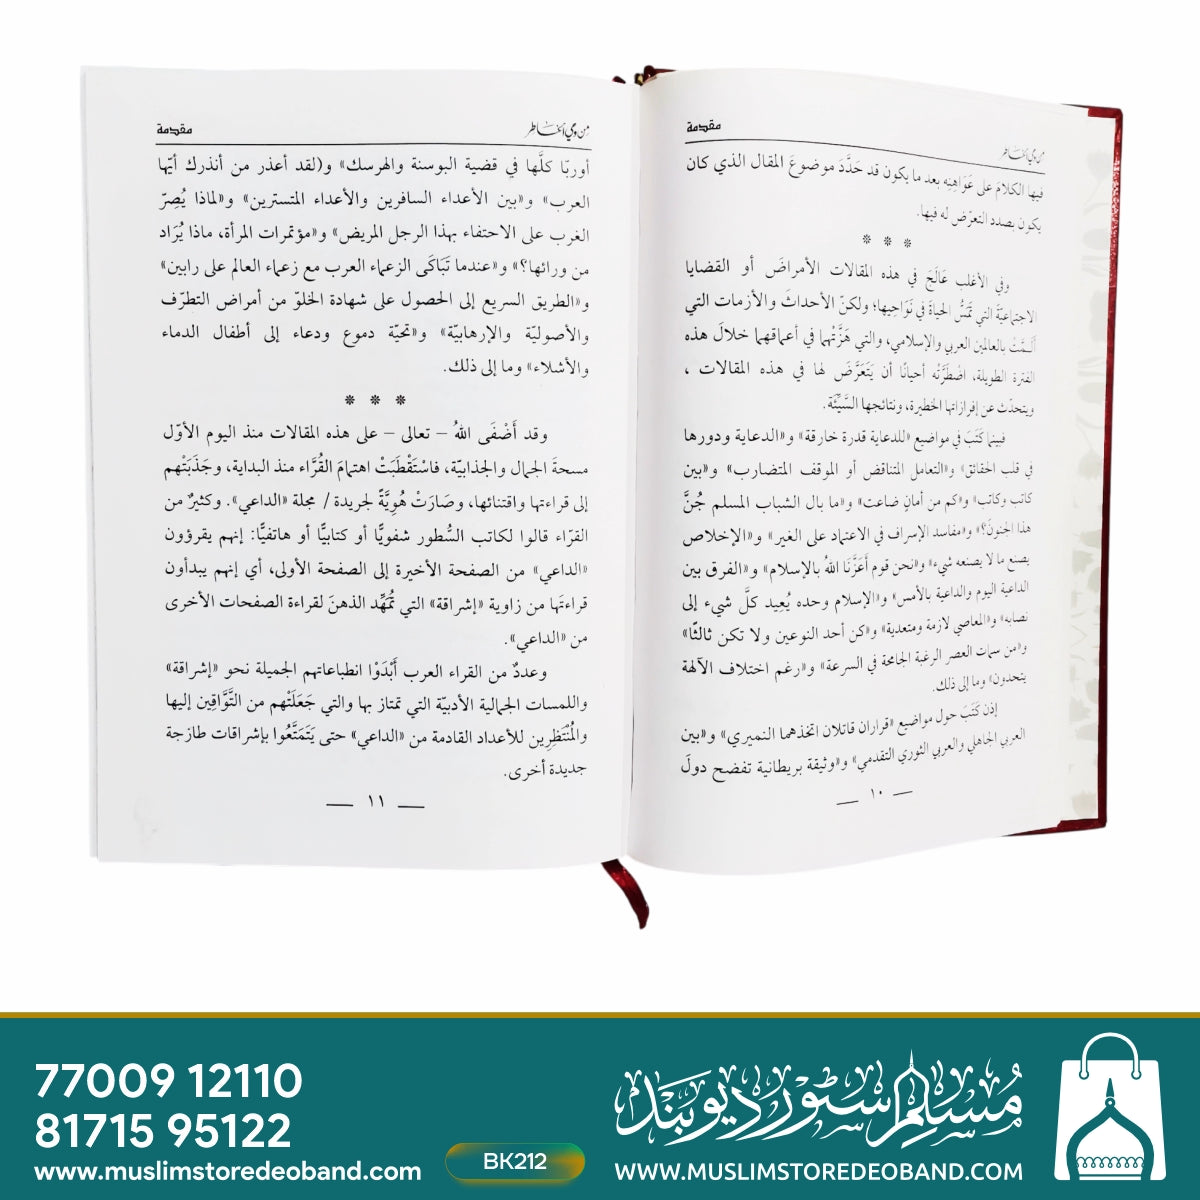 من وحي الخاطر
مقدمة
فيها الكلامَ على عَوَاهِنِه بعد ما يكون قد حَدَّدَ موضوعَ المقال الذي كان
يكون بصدد التعرّض له فيها.
* * *
وفي الأغلب عَالَجَ في هذه المقالات الأمراضَ أو القضايا
الاجتماعيّة التي تَمَسُّ الحياةَ في نَوَاحِيها؛ ولكنّ الأحداثَ والأزمات التي
أَلَـمَّتْ بالعالمين العربي والإسلامي، والتي هَزَّتْهما في أعماقهما خلالَ هذه
الفترة الطويلة، اضْطَرَّتْه أحيانًا أن يَتَعَرَّضَ لها في هذه المقالات ،
ويتحدّث عن إفرازاتها الخطيرة، ونتائجها السَّيِّئَة.
فبينما كَتَبَ في مواضيع «للدعاية قدرة خارقة» و«الدعاية ودورها
في قلب الحقائق» و«التعامل المتناقض أو الموقف المتضارب» و«بين
كاتب وكاتب» و«كم من أمانٍ ضاعت» و«ما بال الشباب المسلم جُنَّ
هذا الجنونَ؟» و«مفاسد الإسراف في الاعتماد على الغير» و«الإخلاص
يصنع ما لا يصنعه شيء» و«نحن قوم أَعَزَّنَا اللهُ بالإسلام» و«الفرق بين
الداعية اليوم والداعية بالأمس» و«الإسلام وحده يُعِيد كلَّ شيء إلى
نصابه» و«المعاصي لازمة ومتعدية» و«كن أحد النوعين ولا تكن ثالثًا»
و«من سمات العصر الرغبة الجامحة في السرعة» و«رغم اختلاف الآلهة
يتحدون» وما إلى ذلك.
إذن كَتَبَ حول مواضيع «قراران قاتلان اتخذهما النميري» و«بين
العربي الجاهلي والعربي الثوري التقدمي» و«وثيقة بريطانية تفضح دولَ
— ١٠ —
من وحي الخاطر
مقدمة
أوربّا كلَّها في قضية البوسنة والهرسك» و«لقد أعذر من أنذرك أيّها
العرب» و«بين الأعداء السافرين والأعداء المتسترين» و«لماذا يُصِرّ
الغرب على الاحتفاء بهذا الرجل المريض» و«مؤتمرات المرأة، ماذا يُرَاد
من ورائها؟» و«عندما تَبَاكَى الزعماء العرب مع زعماء العالم على رابين»
و«الطريق السريع إلى الحصول على شهادة الخلوّ من أمراض التطرّف
والأصوليّة والإرهابيّة» و«تحيّة دموع ودعاء إلى أطفال الدماء
والأشلاء» وما إلى ذلك.
* * *
وقد أَضْفَى اللهُ – تعالى – على هذه المقالات منذ اليوم الأوّل
مسحةَ الجمال والجذابيّة، فاسْتَقْطَبَتْ اهتمامَ القُرَّاء منذ البداية، وجَذَبَتْهم
إلى قراءتها واقتنائها، وصَارَتْ هُوِيَّةً لجريدة / مجلة «الداعي». وكثيرٌ من
القرّاء قالوا لكاتب السُّطور شفويًّا أو كتابيًّا أو هاتفيًّا: إنهم يقرؤون
«الداعي» من الصفحة الأخيرة إلى الصفحة الأولى، أي إنهم يبدأون
قراءتَها من زاوية «إشراقة» التي تُمَهِّد الذهنَ لقراءة الصفحات الأخرى
من «الداعي».
وعددٌ من القراء العرب أَبْدَوْا انطباعاتهم الجميلة نحو «إشراقة»
واللمسات الجمالية الأدبيّة التي تمتاز بها والتي جَعَلَتْهم من التَّوَّاقِين إليها
والمُنْتَظِرِين للأعداد القادمة من «الداعي» حتى يَتَمَتَّعُوا بإشراقات طازجة
جديدة أخرى.
— ١١ —
77009 12110
81715 95122
www.muslimstoredeoband.com
BK212
مُسلم سٹور دیوبند
WWW.MUSLIMSTOREDEOBAND.COM